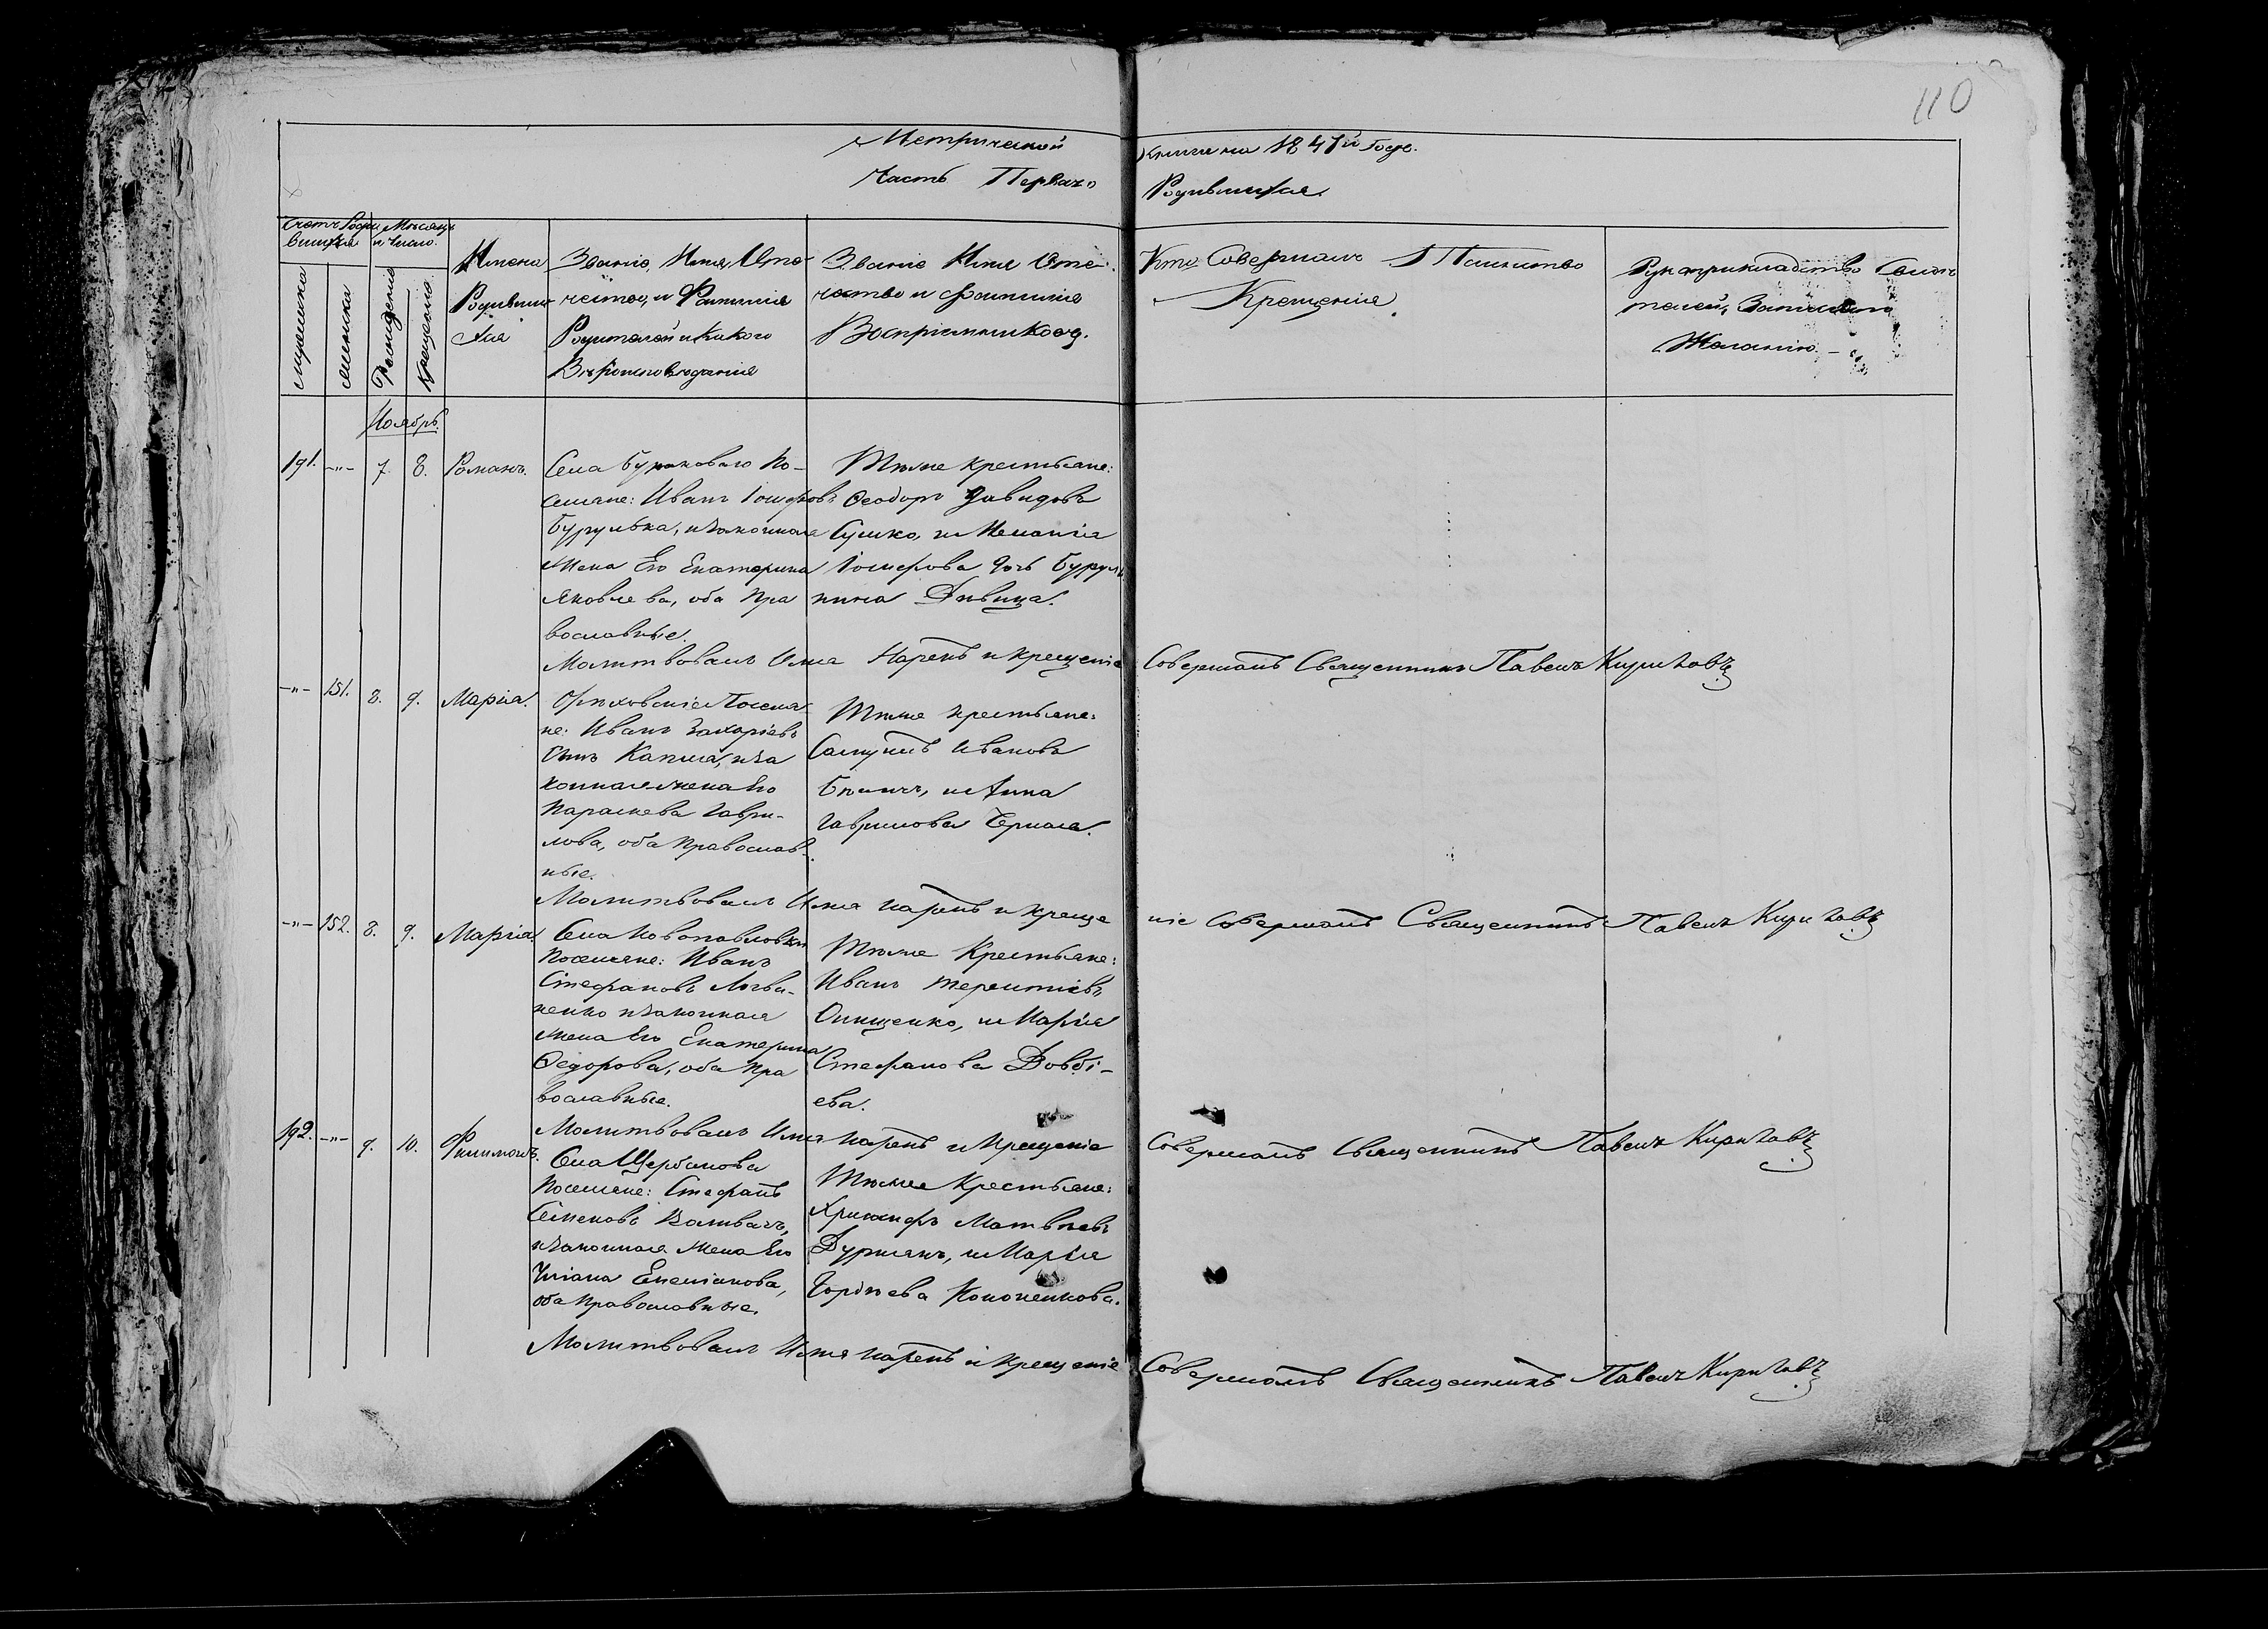 110
Метрической Книги на 1847й Годъ.
Часть Первая о Родившихся.
Счетъ Роди
вшихся
Мѣсяцъ
и Число.
мужеска
женска
Рожденія
Крещенія
Имена
Родивших
ся
Званіе, Имя, Оте-
чество, и Фамилія
Родителей и какого
Вѣроисповѣданія
Званіе Имя Оте-
чество и Фамилія
Воспріемниковъ.
Кто Совершалъ Таинство
Крещенія.
Рукоприкладство Свидѣ
телей, Записи по
Желанію.
Ноябрь.
191. -"- 7. 8. Романъ.
Села По-
селяне: Иванъ Іосифовъ
Бурулька, и законная
Жена Его Екатерина
Яковлева, оба Пра
вославные.
Тѣже крестьяне:
Ѳеодоръ Давидовъ
Сушко, и Меланія
Іосифова дочь Буруль
кина Дѣвица.
Молитвовалъ Имя Нарекъ и крещеніе Совершалъ Священникъ Павелъ
-"- 151. 8. 9. Марія.
Орѣховскіе Поселя
не: Иванъ Захаріевъ
сынъ и за
конная жена Его
Параскева Гаври-
лова, оба Православ-
ные.
Тѣже крестьяне:
Самуилъ Ивановъ
и Анна
Гаврилова
Молитвовалъ Имя нарекъ и креще ніе Совершалъ Священникъ Павелъ
-"- 152. 8. 9. Марія.
Села Новопавловки
Поселяне: Иванъ
Стефановъ Логви-
ненко и законная
жена Его Екатерина
Ѳедорова, оба Пра
вославные.
Тѣже Крестьяне:
Иванъ Терентіевъ
Онищенко, и Марія
Стефанова Довбі-
ева.
Молитвовалъ Имя нарекъ и Крещеніе Совершалъ Священникъ Павелъ
192. -"- 9. 10. Филимонъ.
Села Щербакова
Поселяне: Стефанъ
Семеновъ
и законная Жена Его
Уліана Емеліанова,
оба Православные.
Тѣже Крестьяне:
Матвѣевъ
и Марія
Гордѣева Кононенкова.
Молитвовалъ Имя нарекъ и Крещеніе Совершалъ Священникъ Павелъ